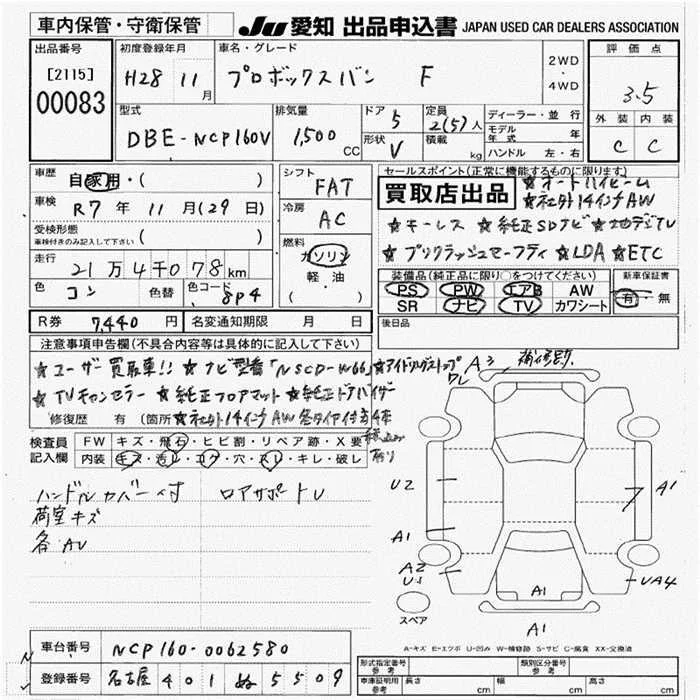 車内保管・守衛保管
JU 愛知 出品申込書 JAPAN USED CAR DEALERS ASSOCIATION
出品番号 [2115] 00083
初度登録年月 H28 11月
車名・グレード プロボックスバン F
2WD・4WD
評価点 3.5
外装 C 内装 C
型式 DBE-NCP160V
排気量 1,500 CC
ドア 5
形状 V
定員 2(5)人
積載 kg
ディーラー・並行
モデル年式 年
ハンドル 左・右
車歴 自家用・( )
車検 R7年 11月(29日)
受検形態 ( )
車検付きのみ記入して下さい
走行 21万4千078km
色 コン 色替 色コード 8P4
シフト FAT
冷房 AC
燃料 ガソリン
軽・油
( )
セールスポイント(正常に機能するものに限ります)
買取店出品 ★オートハイビーム
★社外14インチAW
★キーレス ★純正SDナビ ★地デジTV
★プリクラッシュセーフティ ★LDA ★ETC
装備品(純正品に限り○をつけてください)
PS PW エアB AW
SR ナビ TV カワシート
新車保証書
有・無
後日品
R券 7,440円 名変通知期限 月 日
注意事項申告欄(不具合内容等は具体的に記入して下さい)
★ユーザー買取車!! ★ナビ型番「NSCD-W66」★アイドリングストップ
★TVキャンセラー ★純正フロアマット ★純正ドアバイザー
修復歴 有 (箇所 ★社外14インチAW 各タイヤ付き4本
積込み有り
検査員記入欄
FW キズ・飛石・ヒビ割・リペア跡・X要
内装 キズ・汚レ・コゲ・穴・スレ・キレ・破レ
ハンドルカバー付 ロアサポートU
荷室キズ
各AU
A3 補修跡
U2
A1
A2
A1
UA4
A1
A1
スペア
A-キズ E-エクボ U-凹み W-補修跡 S-サビ C-腐食 XX-交換済
車台番号 NCP160-0062580
登録番号 名古屋 401 ぬ 5509
形式指定番号 参考
類別区分番号 参考
車庫証明用 参考 長さ cm 幅 cm 高さ cm